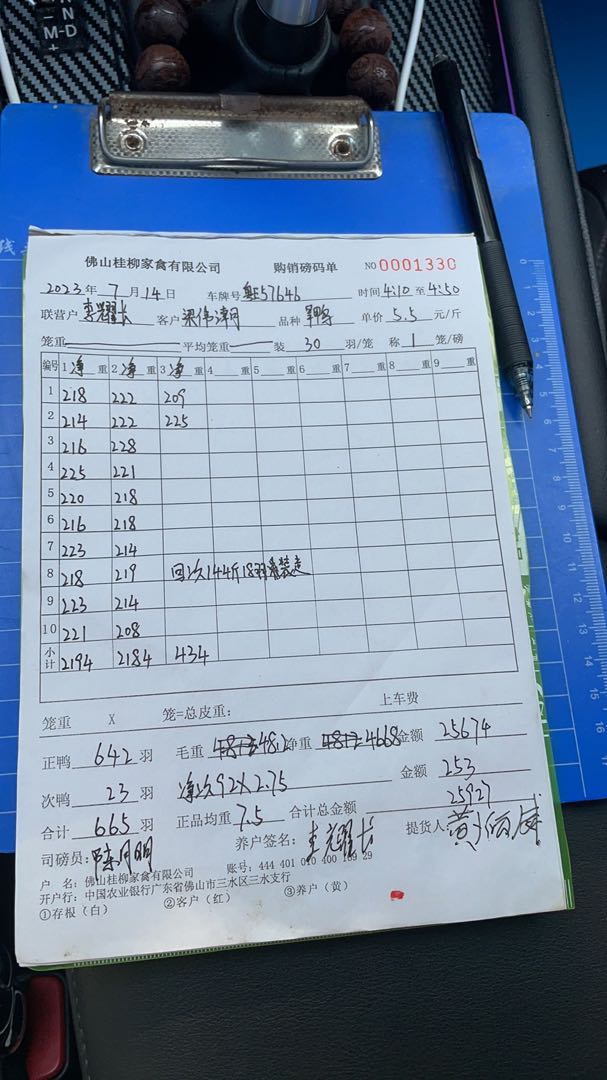 N
M-D
+
佛山桂柳家禽有限公司 购销磅码单 NO 0001330
2023年 7月 14日 车牌号 粤E57646 时间 4:10 至 4:50
联营户 李耀长 客户 梁伟 品种 单价 5.5 元/斤
笼重 平均笼重 装 30 羽/笼 称 1 笼/磅
编号 1净重 2净重 3净重 4 重 5 重 6 重 7 重 8 重 9 重
1 218 222 209
2 214 222 225
3 216 228
4 225 221
5 220 218
6 216 218
7 223 214
8 218 219 回次144斤18羽 装走
9 223 214
10 221 208
小计 2194 2184 434
笼重 X 笼=总皮重: 上车费
正鸭 642 羽 毛重 4812 净重 4668 金额 25674
次鸭 23 羽 净次92X2.75 金额 253
合计 665 羽 正品均重 7.5 合计总金额 25927
司磅员: 陈月明 养户签名: 李耀长 提货人: 黄
户 名: 佛山桂柳家禽有限公司 账号: 444 401 010 400 169 29
开户行: 中国农业银行广东省佛山市三水区三水支行
①存根(白) ②客户(红) ③养户(黄)
0 1 2 3 4 5 6 7 8 9 10 11 12 13 14 15